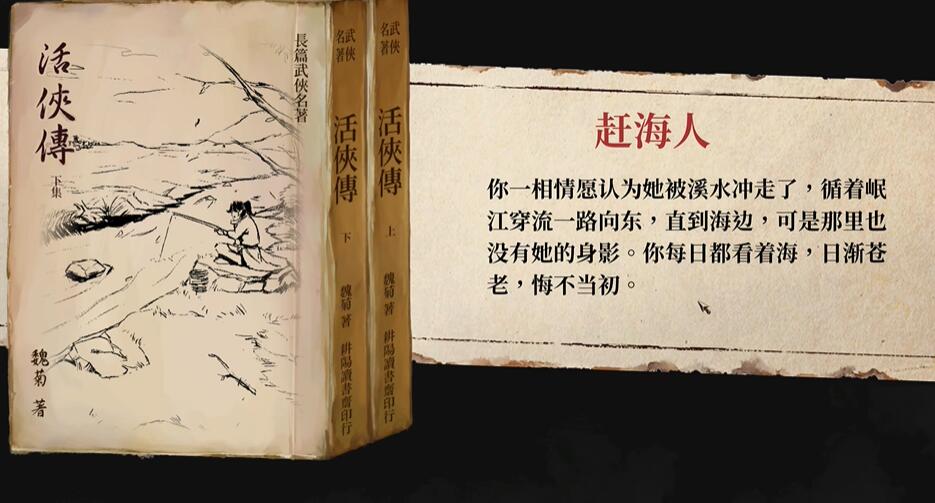 活俠傳
下集
長篇武俠名著
魏菊 著
武俠名著
活俠傳
下
魏菊 著
耕陽讀書齋印行
武俠名著
活俠傳
上
魏菊 著
耕陽讀書齋印行
赶海人
你一相情愿认为她被溪水冲走了，循着岷
江穿流一路向东，直到海边，可是那里也
没有她的身影。你每日都看着海，日渐苍
老，悔不当初。